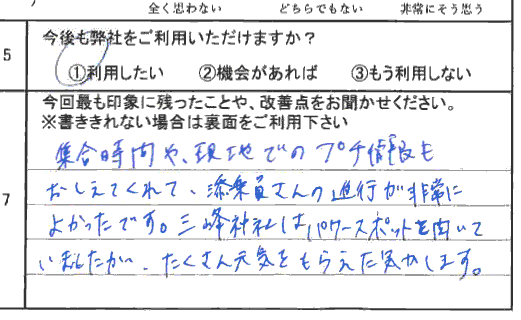 全く思わない どちらでもない 非常にそう思う
5 今後も弊社をご利用いただけますか？
①利用したい ②機会があれば ③もう利用しない
今回最も印象に残ったことや、改善点をお聞かせください。
※書ききれない場合は裏面をご利用下さい
7
集合時間や、現地でのプチ情報も
おしえてくれて、添乗員さんの進行が非常に
よかったです。三峰神社はパワースポットと聞いて
いましたが、たくさん元気をもらえた気がします。